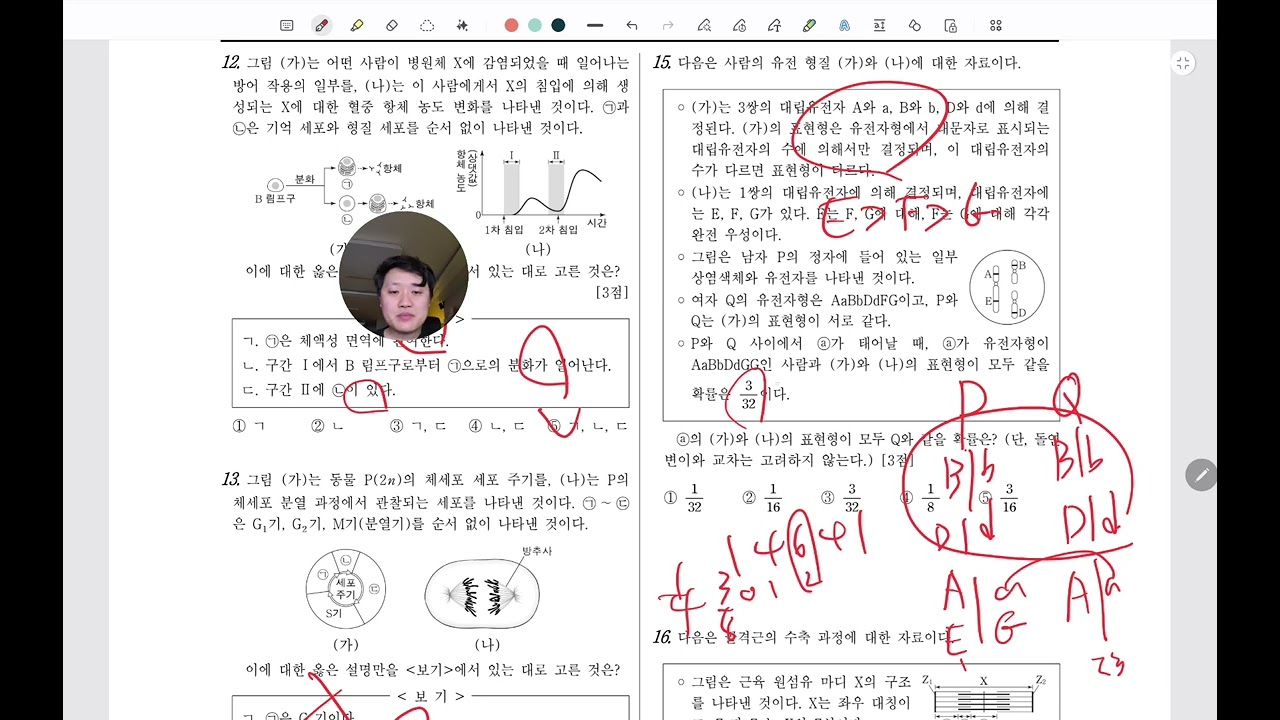 12. 그림 (가)는 어떤 사람이 병원체 X에 감염되었을 때 일어나는
방어 작용의 일부를, (나)는 이 사람에게서 X의 침입에 의해 생
성되는 X에 대한 혈중 항체 농도 변화를 나타낸 것이다. ㉠과
㉡은 기억 세포와 형질 세포를 순서 없이 나타낸 것이다.
B 림프구
분화
항체
㉠
항체
㉡
항체 농도 (상댓값)
Ⅰ
Ⅱ
0
1차 침입
2차 침입
시간
(나)
이에 대한 옳은
서 있는 대로 고른 것은?
[3점]
>
ㄱ. ㉠은 체액성 면역에 관여한다.
ㄴ. 구간 Ⅰ에서 B 림프구로부터 ㉠으로의 분화가 일어난다.
ㄷ. 구간 Ⅱ에 ㉡이 있다.
① ㄱ ② ㄴ ③ ㄱ, ㄷ ④ ㄴ, ㄷ ⑤ ㄱ, ㄴ, ㄷ
13. 그림 (가)는 동물 P(2n)의 체세포 세포 주기를, (나)는 P의
체세포 분열 과정에서 관찰되는 세포를 나타낸 것이다. ㉠～㉢
은 G₁기, G₂기, M기(분열기)를 순서 없이 나타낸 것이다.
㉠
㉡
㉢
세포
주기
S기
(가)
방추사
(나)
이에 대한 옳은 설명만을 <보기>에서 있는 대로 고른 것은?
< 보 기 >
15. 다음은 사람의 유전 형질 (가)와 (나)에 대한 자료이다.
○ (가)는 3쌍의 대립유전자 A와 a, B와 b, D와 d에 의해 결
정된다. (가)의 표현형은 유전자형에서 대문자로 표시되는
대립유전자의 수에 의해서만 결정되며, 이 대립유전자의
수가 다르면 표현형이 다르다.
○ (나)는 1쌍의 대립유전자에 의해 결정되며, 대립유전자에
는 E, F, G가 있다. E는 F, G에 대해, F는 G에 대해 각각
완전 우성이다.
E > F > G
○ 그림은 남자 P의 정자에 들어 있는 일부
상염색체와 유전자를 나타낸 것이다.
A
B
E
D
○ 여자 Q의 유전자형은 AaBbDdFG이고, P와
Q는 (가)의 표현형이 서로 같다.
○ P와 Q 사이에서 ⓐ가 태어날 때, ⓐ가 유전자형이
AaBbDdGG인 사람과 (가)와 (나)의 표현형이 모두 같을
확률은 3/32이다.
ⓐ의 (가)와 (나)의 표현형이 모두 Q와 같을 확률은? (단, 돌연
변이와 교차는 고려하지 않는다.) [3점]
① 1/32 ② 1/16 ③ 3/32 ④ 1/8 ⑤ 3/16
P Q
B|b B|b
D|d D|d
A|a A|a
E G
1 4 6 4 1
16. 다음은 골격근의 수축 과정에 대한 자료이다.
○ 그림은 근육 원섬유 마디 X의 구조
를 나타낸 것이다. X는 좌우 대칭이
Z₁
X
Z₂